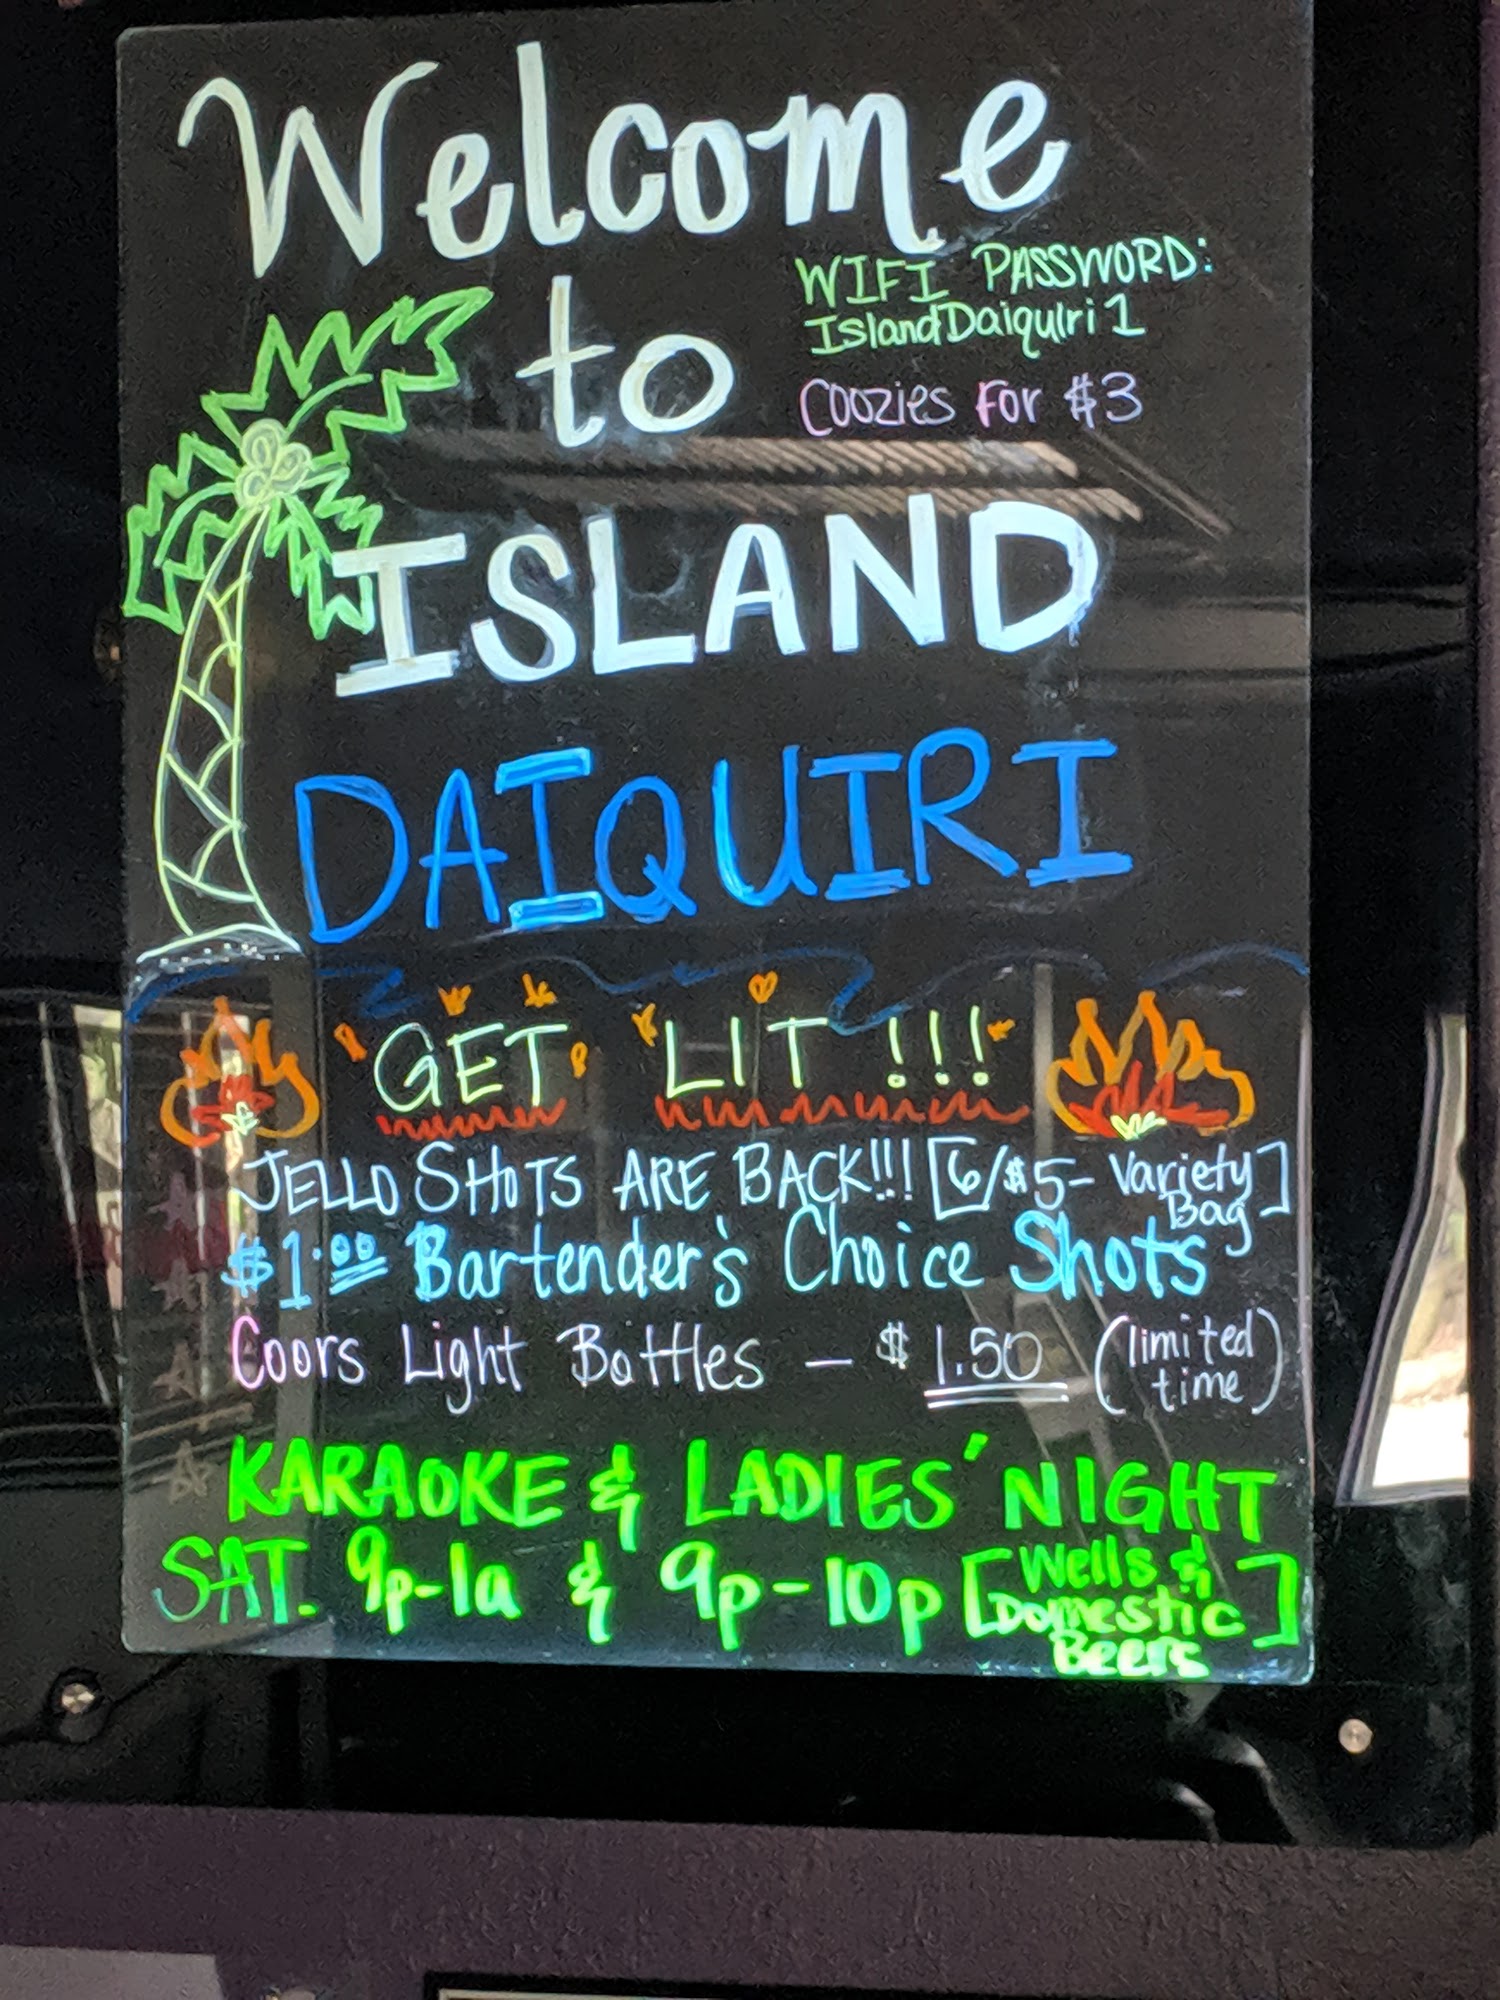 Welcome
to
WIFI PASSWORD:
IslandDaiquiri 1
COOZIES FOR $3
ISLAND
DAIQUIRI
GET LIT !!!
JELLO SHOTS ARE BACK!!! [6/$5- Variety Bag]
$1.00 Bartender's Choice Shots
Coors Light Bottles — $1.50 (limited time)
KARAOKE & LADIES' NIGHT
SAT. 9p-1a & 9p-10p [Wells & Domestic Beers]